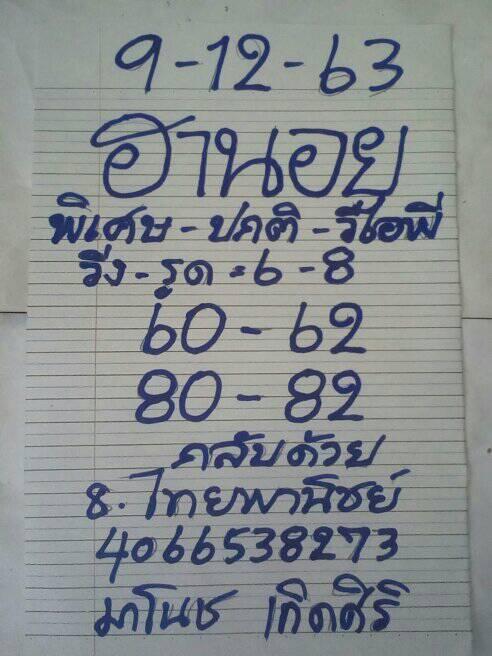 9-12-63
ฮานอย
พิเศษ - ปกติ - วีไอพี
วิ่ง - รูด = 6 - 8
60 - 62
80 - 82
กลับด้วย
8. ไทยพานิชย์
4066538273
มาโนช เกิดศิริ